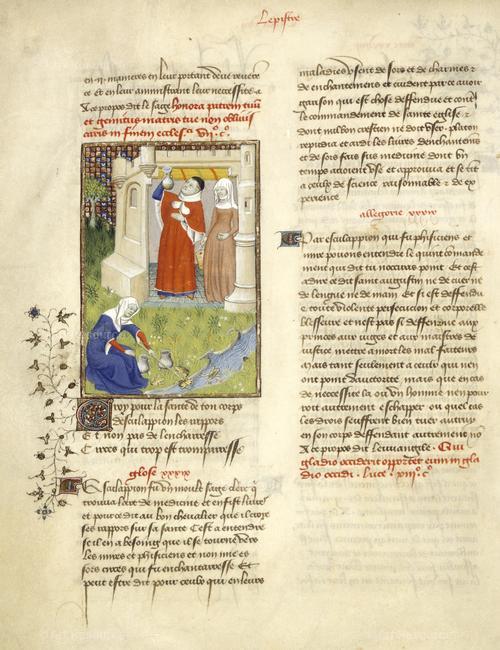 Lepistre
en .ij. manieres en leur portant deue revere
ce et en leur aministrant leur necessites a
ce propos dit le sage honora patrem tuu
et gemitus matris tue non oblivis
caris in finem eccles.ci .vij.o c.o
Croy pour la sante de ton corps
Desculappion les rappors
Et non pas de lencharresse
Circes qui trop est tromparresse
glose xxxix
Esculappion fu un moult sage clerc q
trouva lart de medicine et en fist livres
et pour ce dit au bon chevalier que il croye
ses rappors sur sa sante Cest a entendre
se il en a besoing que il se tourne vers
les mires et phisiciens et non mie es
sors circes qui fu enchantarresse Et
peut estre dit pour ceulx qui en leurs
maladies usent de sors et de charmes et
de enchantemens et cuident par ce avoir
garison qui est chose deffendue et cont
le commandement de sainte eglise et
dont nul bon crestien ne doit user . platon
repudia et ardi les livres denchantemens
et de sors fais sus medicine dont un
temps usé et approuva et se tit
a ceulx de science raisonnable et de ex
perience
allegorie xxxix
Par esculappion qui fu phisiciens et
mire povons entendre le quint comande
ment qui dit tu nocciras point Et cest
adire ce dit saint augustin ne de cuer ne
de langue ne de main Et si est deffendu
e toute violente percucion et corporelle
blessure et nest pas si deffendu aux
princes aux juges et aux maistres de
justice mettre a mort les mal faiteurs
Mais tant seulement a ceulx qui nen
ont point dauctorite mais que en cas
de necessite la ou un homme nen pour
roit autrement eschapper ou quel cas
les drois seuffrent bien tuer autruy
en son corps deffendant autrement no
A ce propos dit leuvangile . Qui
gladio occiderit oportet eum in gla
dio occidi . luce . xiij.o c.o